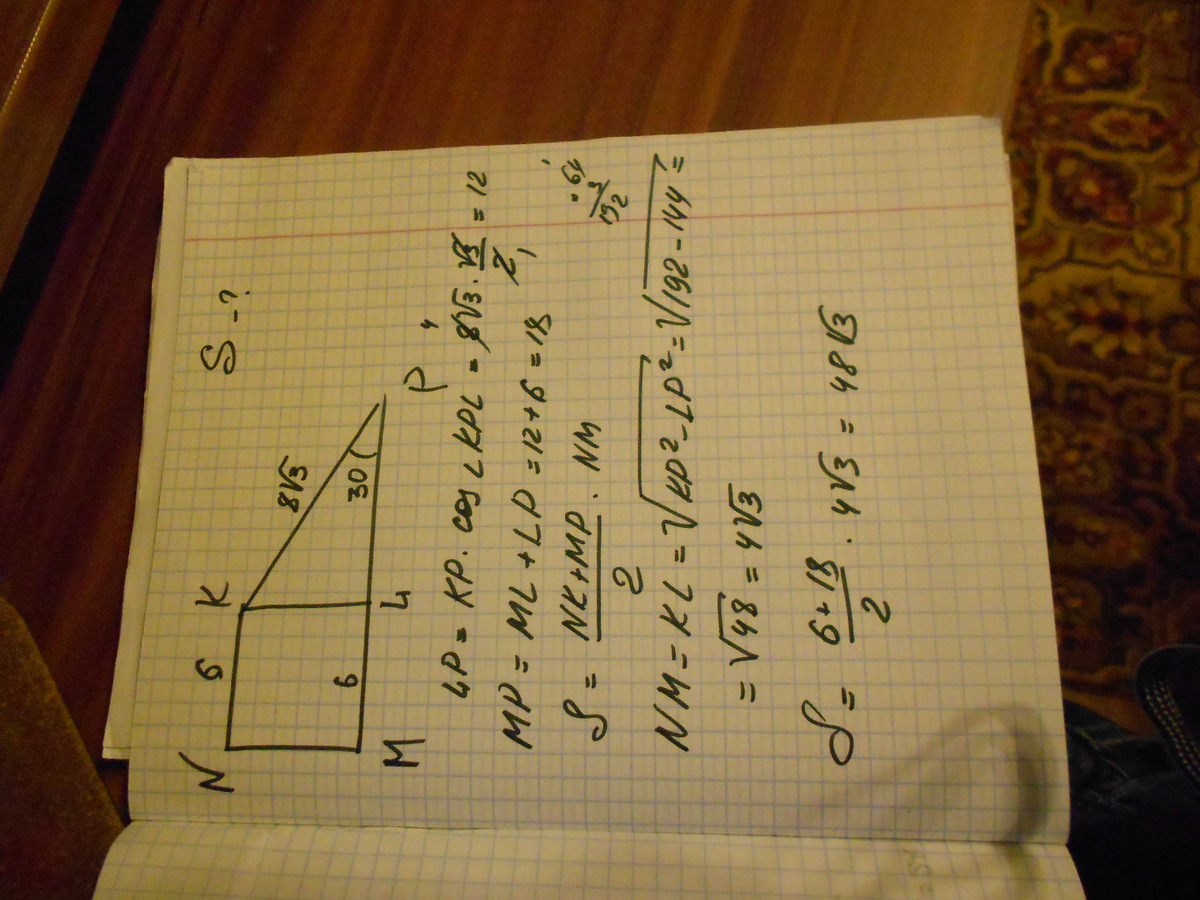 S - ?
N 6 K
8√3
30
6
M L P
LP = KP · cos ∠KPL = 8√3 · √3/2 = 12
4
1
MP = ML + LP = 12 + 6 = 18
S = (NK + MP)/2 · NM
64
3
192
NM = KL = √(KP² - LP²) = √(192 - 144) =
= √48 = 4√3
S = (6 + 18)/2 · 4√3 = 48√3